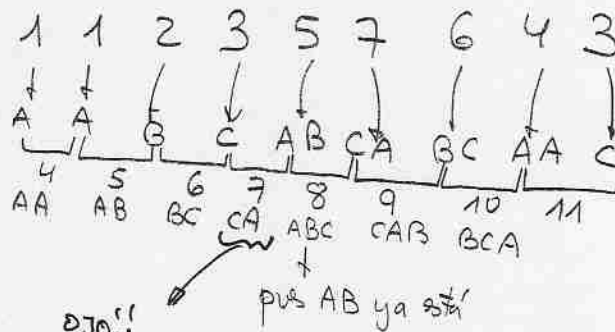 1 1 2 3 5 7 6 4 3
A A B C AB CA BC AA C
4 5 6 7 8 9 10 11
AA AB BC CA ABC CAB BCA
ojo!! pues AB ya está